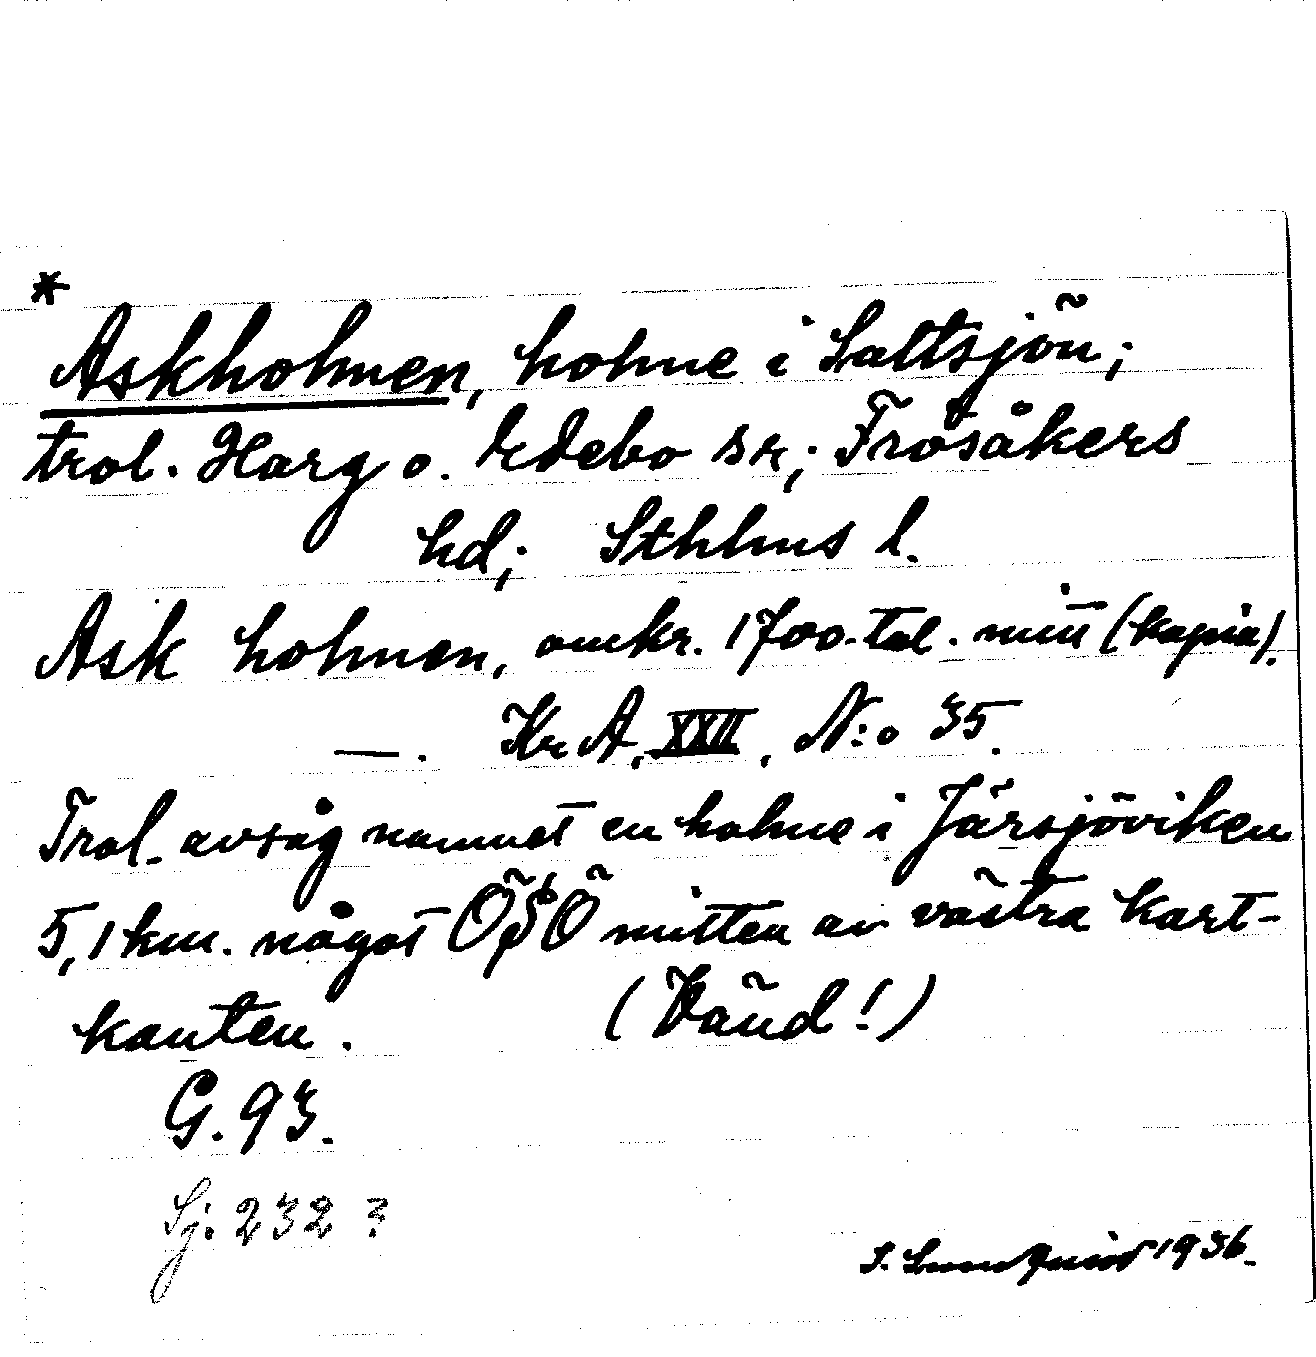 *
Askholmen, holme i Saltsjön;
trol. Harg o. Edebo sn; Frösåkers
hd; Sthlms l.
Ask holmen, omkr. 1700-tal. mitt (kopia).
—. Kr A, XXII, N:o 35.
Trol. avsåg namnet en holme i Järsjöviken
5,1 km. något ÖSÖ mitten av västra kart-
kanten. (Vänd!)
G. 93.
Sj. 232 ?
S. Lundquist 1936.